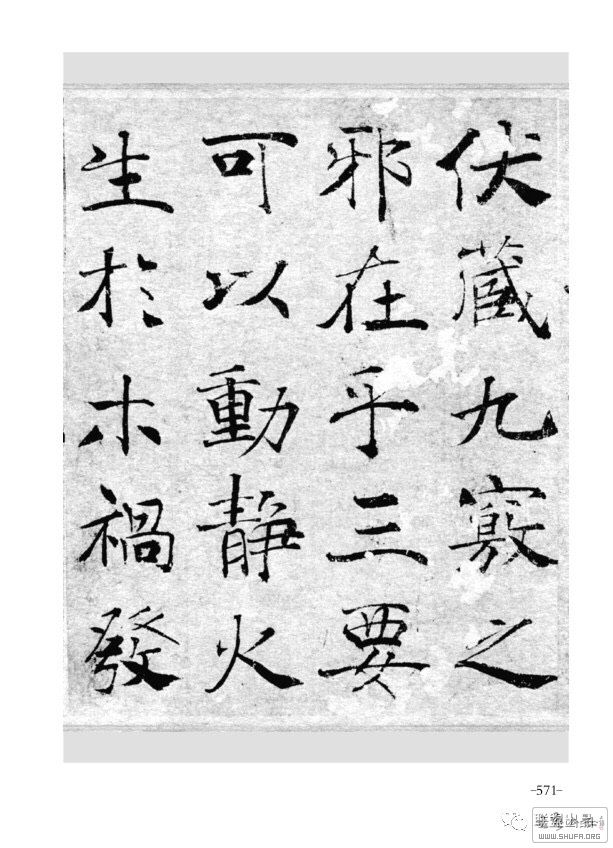 伏藏九竅之
邪在乎三要
可以動靜火
生於木禍發
-571-
WWW.SHUFA.ORG